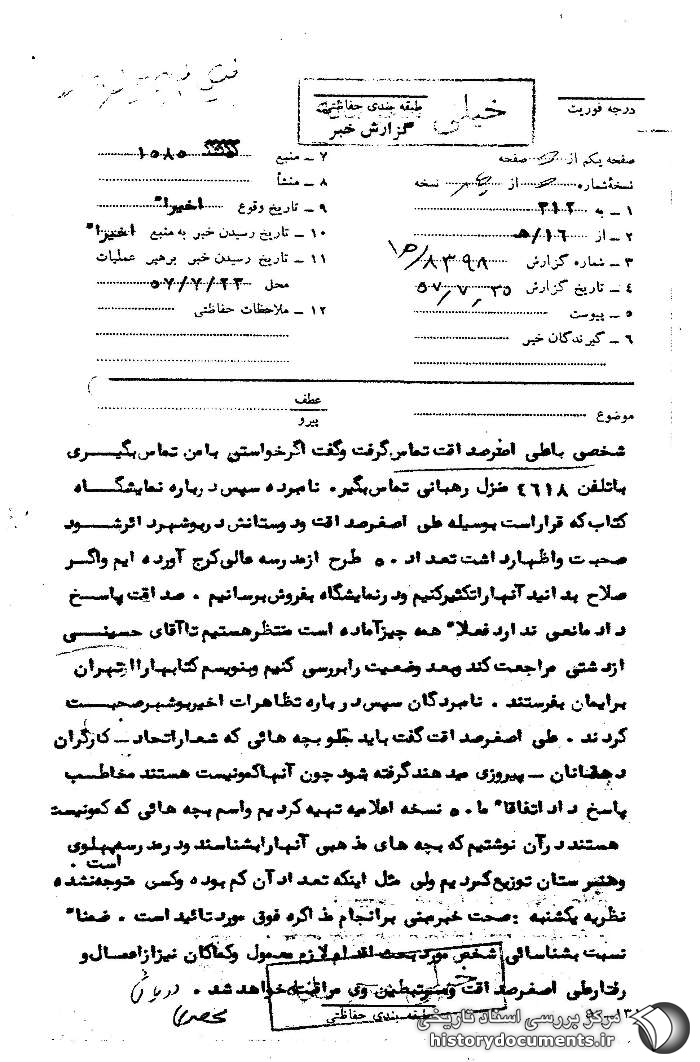 درجه فوریت
خیلی
طبقه بندی حفاظتی
گزارش خبر
صفحه یکم از صفحه
نسخه شماره از نسخه
۱ ـ به ۳۱۲
۲ ـ از ۱۶/ه‍
۳ ـ شماره گزارش ۸۳۹۸/
۴ ـ تاریخ گزارش ۵۷٫۷٫۲۵
۵ ـ پیوست
۶ ـ گیرندگان خبر
۷ ـ منبع ۱۰۸۵
۸ ـ منشأ
۹ ـ تاریخ وقوع اخیراً
۱۰ ـ تاریخ رسیدن خبر به منبع اخیراً
۱۱ ـ تاریخ رسیدن خبر برهبر عملیات
محل ۵۷/۷/۲۳
۱۲ ـ ملاحظات حفاظتی
موضوع
عطف
پیرو
شخصی باعلی اصغرصداقت تماس گرفت وگفت اگرخواستی بامن تماس بگیری
باتلفن ۴۶۱۸ منزل رهبانی تماس بگیر. نامبرده سپس درباره نمایشگاه
کتاب که قراراست بوسیله علی اصغرصداقت ودوستانش دربوشهردائرشود
صحبت واظهارداشت تعداد ۵۰ طرح ازمدرسه عالی کرج آورده ایم واگر
صلاح بدانید آنهاراتکثیرکنیم ودرنمایشگاه بفروش برسانیم . صداقت پاسخ
داد مانعی ندارد فعلاً همه چیزآماده است منتظرهستیم تاآقای حسینی
ازدشتی مراجعت کند وبعد وضعیت رابررسی کنیم وبنویسم کتابهاراازتهران
برایمان بفرستند . نامبردگان سپس درباره تظاهرات اخیربوشهرصحبت
کردند . علی اصغرصداقت گفت باید جلو بچه هائی که شعاراتحاد ـ کارگران
دهقانان ـ پیروزی میدهند گرفته شود چون آنهاکمونیست هستند مخاطب
پاسخ داد اتفاقاً ما ۵۰ نسخه اعلامیه تهیه کردیم واسم بچه هائی که کمونیست
هستند درآن نوشتیم که بچه های مذهبی آنهارابشناسند ودرمدرسه پهلوی
وهنرستان توزیع کردیم ولی مثل اینکه تعدادآن کم بوده وکسی متوجه نشده
است .
نظریه یکشنبه : صحت خبرمبنی برانجام مذاکره فوق مورد تائید است . ضمناً
نسبت بشناسائی شخص مورد بحث اقدام لازم معمول وکماکان نیزازاعمال و
رفتارعلی اصغرصداقت ومرتبطین وی مراقبت خواهد شد .
طبقه بندی حفاظتی
مرکز بررسی اسناد تاریخی
historydocuments.ir